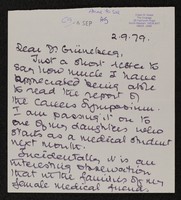 2-9-79.
Dear Dr Grüneberg,
Just a short letter to
say how much I have
appreciated being able
to read the report of
the Cancer Symposium.
I am passing it on to
one of my daughters who
starts as a medical student
next month.
Incidentally, it is an
interesting observation
that in the families of my
female medical friends